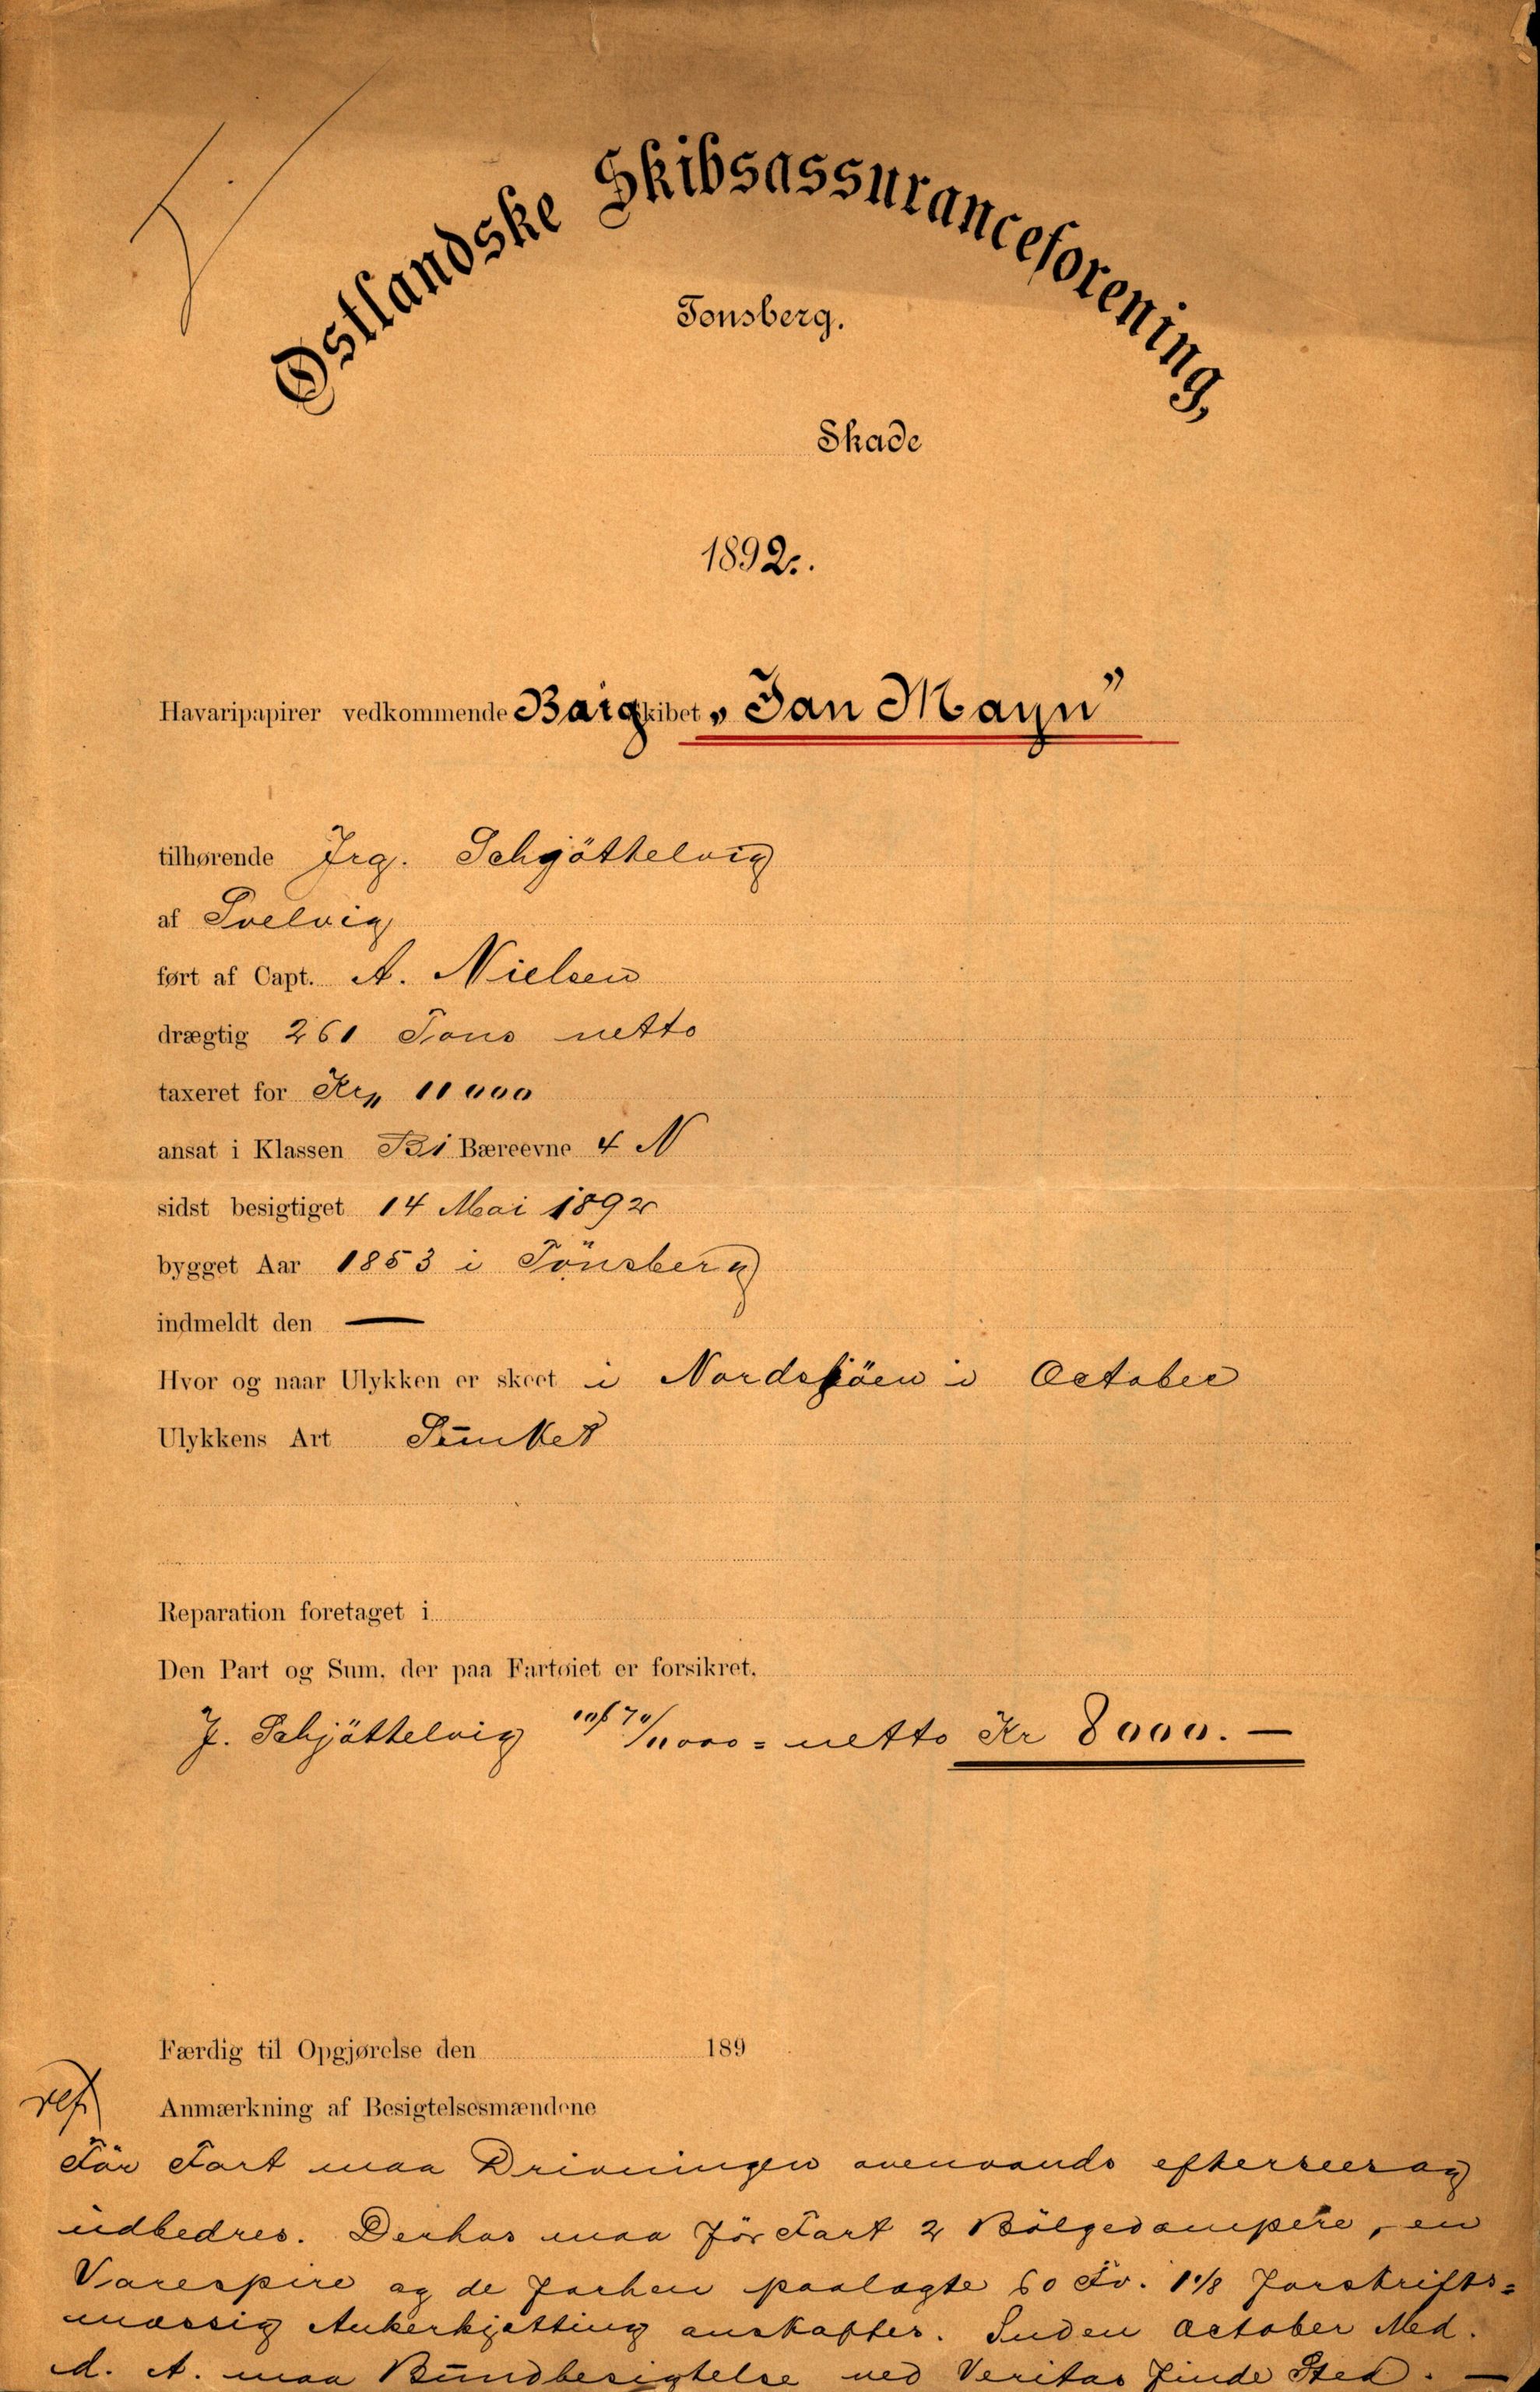 Østlandske Skibsassuranceforening,
Tønsberg.
Skade
1892.
Havaripapirer vedkommende Barqskibet „Jan Mayn”
tilhørende Jrg. Schjöthelvig
af Svelvig
ført af Capt. A. Nielsen
drægtig 261 Tons netto
taxeret for Kr„ 11000
ansat i Klassen B1 Bæreevne 4 N
sidst besigtiget 14 Mai 1892
bygget Aar 1853 i Tönsberg
indmeldt den —
Hvor og naar Ulykken er skeet i Nordsjöen i October
Ulykkens Art Sunket
Reparation foretaget i
Den Part og Sum, der paa Fartøiet er forsikret.
J. Schjöthelvig /11000 = netto Kr 8000. —
Færdig til Opgjørelse den 189
Anmærkning af Besigtelsesmændene
För Fart maa Drivningen ovenvands efterseesog
udbedres. Derhos maa för Fart 2 Bölgedampere, en
Varespire og de forhen paalagte 60 Fv. 1 1/8 Forskrifts=
mæssig Ankerkjetting anskaffes. Inden October Med.
d. A. maa Bundbesigtelse ved Veritas finde Sted. —